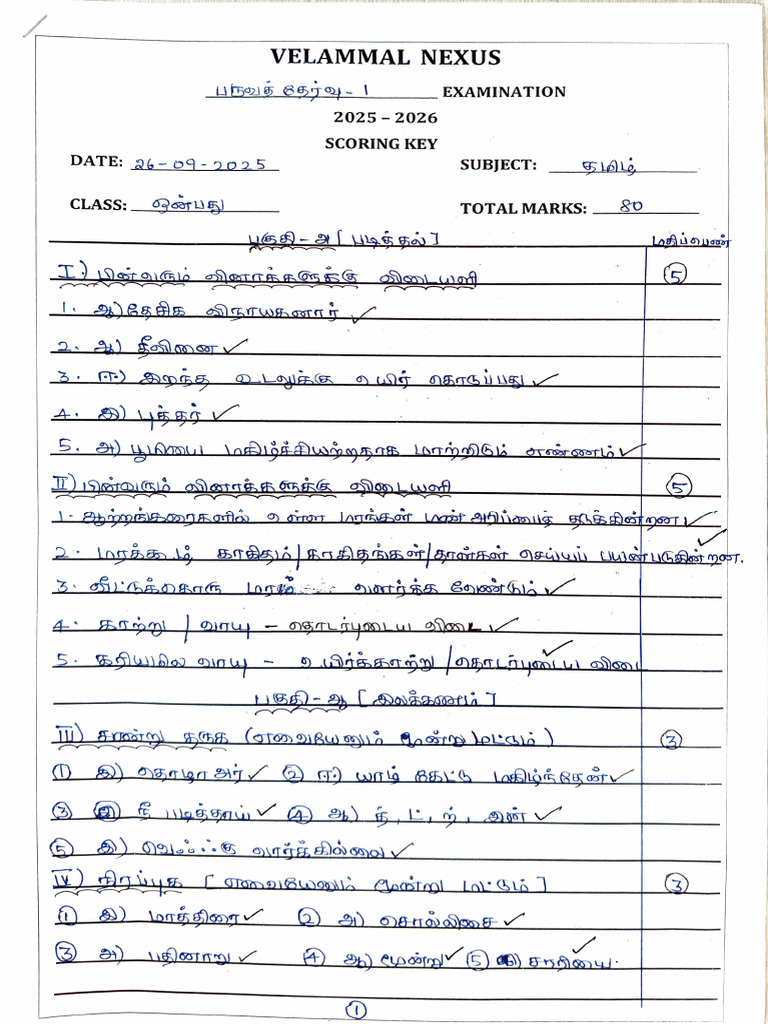 VELAMMAL NEXUS
பருவத் தேர்வு - 1 EXAMINATION
2025 – 2026
SCORING KEY
DATE: 26-09-2025 SUBJECT: தமிழ்
CLASS: ஒன்பது TOTAL MARKS: 80
பகுதி-அ [ படித்தல் ] மதிப்பெண்
I) பின்வரும் வினாக்களுக்கு விடையளி 5
1. ஆ) தேசிக விநாயகனார் ✓
2. ஆ) தீவினை ✓
3. ஈ) இறந்த உடலுக்கு உயிர் கொடுப்பது ✓
4. இ) புத்தர் ✓
5. அ) பூமியை மகிழ்ச்சியற்றதாக மாற்றிடும் எண்ணம் ✓
II) பின்வரும் வினாக்களுக்கு விடையளி 5
1. ஆற்றங்கரைகளில் உள்ள மரங்கள் மண் அரிப்பைத் தடுக்கின்றன ✓
2. மரக்கூழ் காகிதம்/காகிதங்கள்/தாள்கள் செய்யப் பயன்படுகின்றன. ✓
3. வீட்டுக்கொரு மரம் வளர்க்க வேண்டும் ✓
4. காற்று / வாயு - தொடர்புடைய விடை ✓
5. கரியமில வாயு - உயிர்க்காற்று/தொடர்புடைய விடை ✓
பகுதி-ஆ [ இலக்கணம் ]
III) சான்று தருக (எவையேனும் மூன்று மட்டும்) 3
① இ) தொழாஅர் ✓ ② ஈ) யாழ் கேட்டு மகிழ்ந்தேன் ✓
③ நீ படித்தாய் ✓ ④ ஆ) த், ட், ற், இன் ✓
⑤ இ) வெஃஃகு வார்க்கில்லை ✓
IV) நிரப்புக [ எவையேனும் மூன்று மட்டும் ] 3
① இ) மாத்திரை ✓ ② அ) சொல்லிசை ✓
③ அ) பதினாறு ✓ ④ ஆ) மூன்று ✓ ⑤ சாரியை. ✓
①